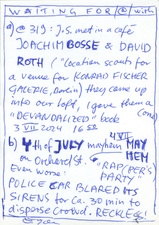 WAITING FOR/@/with
a) @ 313: J.S. met in a café
JOACHIM BOSSE & DAVID
ROTH ("Location scouts for
a venue for KONRAD FISCHER
GALERIE, Berlin) they came up
into our loft, I gave them a
"DEVANDALIZED" book (one)
3 VII 2024 16 50
4 VII
b) 4th of JULY mayhem MAY
on Orchard St. HEM
Even worse: "RAP/PER'S
PARTY"
POLICE CAR BLARED ITS
SIRENS for Ca. 30 min to
disperse Crowd. RECKLESS!